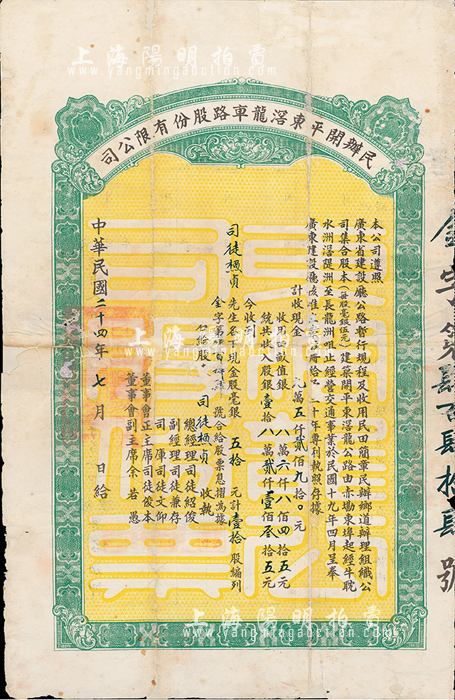 上海陽明拍賣
www.yangmingauction.com
民辦開平東滘龍車路股份有限公司
本公司遵照
廣東省建設廳公路暫行規程及收用民田簡章民辦鄉道辦理組織公
司集合股本(每股毫銀伍元)建築開平東滘龍公路由赤坎東埠起經牛眈
水洲滘堤洲至長龍洲咀止經營交通事業於民國十九年四月呈奉
廣東建設廳
三十年專利執照存據
計收現金 萬五仟貳佰九十〇元
收用田畝值銀 八萬六仟八佰四拾五元
統共收入股銀壹拾 八萬貳仟壹佰叁拾五元
今收到
司徒 貞 先生名下現金股毫銀 五拾 元計壹拾股編列
金字第 號合給股票息摺為據
右給股東 司徒 貞 收執
總經理司徒紹俊
副經理司徒兼存
司庫司徒文仰
董事會正主席司徒俊本
董事會副主席余若愚
中華民國二十四年七月 日給
金字第肆百肆拾肆號
上海陽明拍賣
www.yangmingauction.com